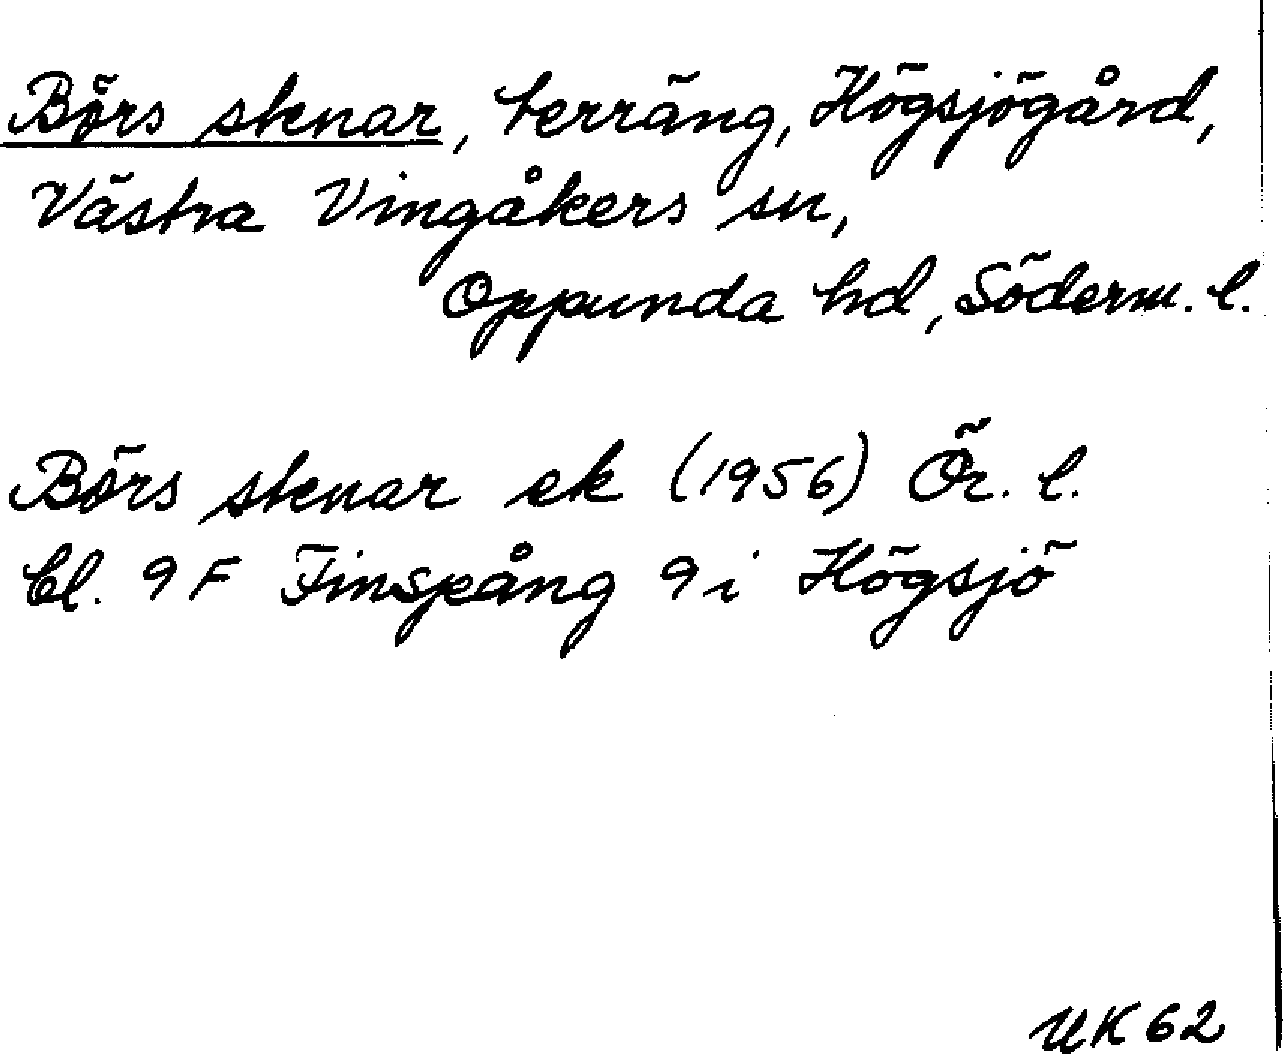 Börs stenar, terräng, Högsjögård,
Västra Vingåkers sn,
Oppunda hd, Söderm. l.
Börs stenar ek (1956) Ör. l.
bl. 9 F Finspång 9 i Högsjö
UK 62